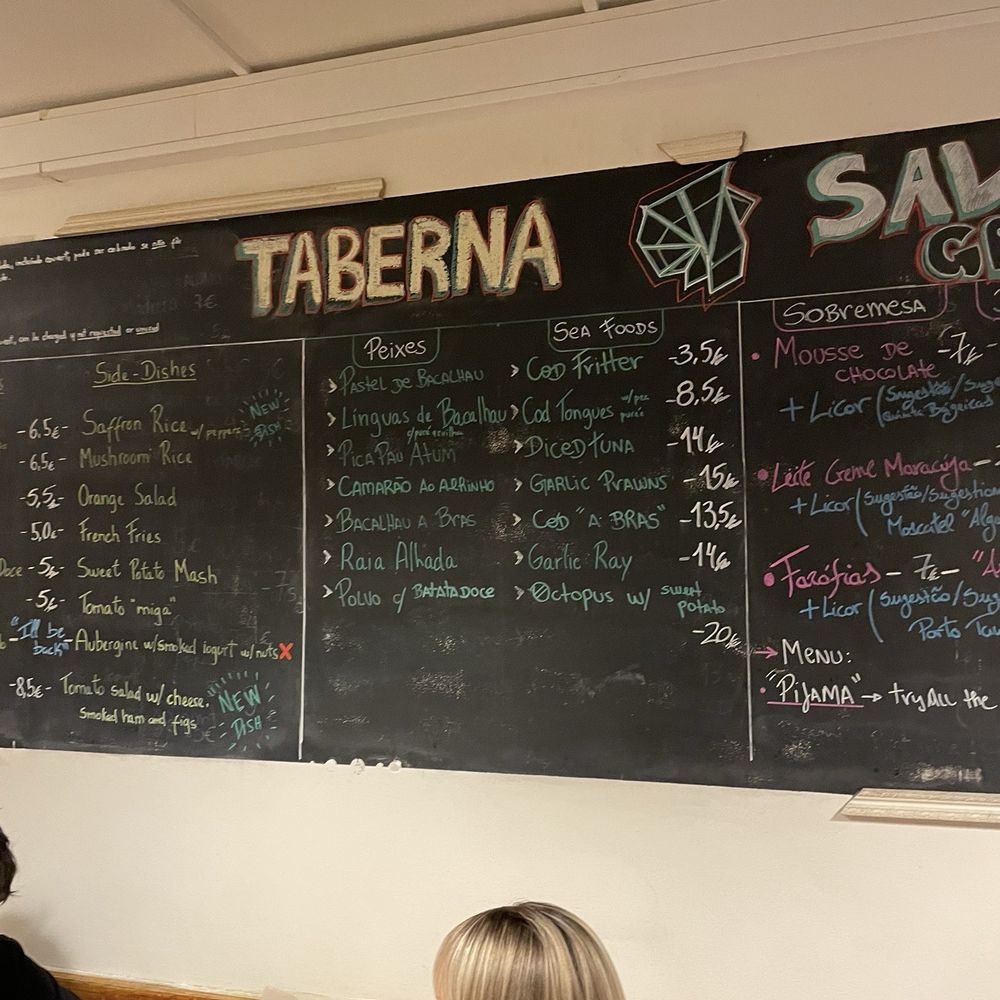 TABERNA
SAL
G
incluindo couvert, pode ser cobrado se não for
can be charged if not requested or unused
Side-Dishes
-6,5€- Saffron Rice w/ peppers NEW DISH
-6,5€- Mushroom Rice
-5,5€- Orange Salad
-5,0€- French Fries
Doce -5€- Sweet Potato Mash
-5€- Tomato "miga"
"I'll be back" - Aubergine w/smoked iogurt w/nuts X
-8,5€- Tomato salad w/ cheese,
smoked ham and figs
NEW DISH
Peixes Sea Foods
> Pastel de Bacalhau > Cod Fritter -3,5€
> Línguas de Bacalhau > Cod Tongues -8,5€
> Pica Pau Atum > Diced Tuna -14€
> Camarão ao Alhinho > Garlic Prawns -15€
> Bacalhau a Bras > Cod "A BRAS" -13,5€
> Raia Alhada > Garlic Ray -14€
> Polvo c/ Batata Doce > Octopus w/ sweet potato
-20€
Sobremesa
• Mousse de -7€-
chocolate
+ Licor (Sugestão/Suge
• Leite Creme Maracujá -
+ Licor (Sugestão/Sugestion
Moscatel "Alg
• Farófias - 7€ - "A
+ Licor (Sugestão/Sug
Porto Taw
→ Menu:
• "Pijama" → try all the